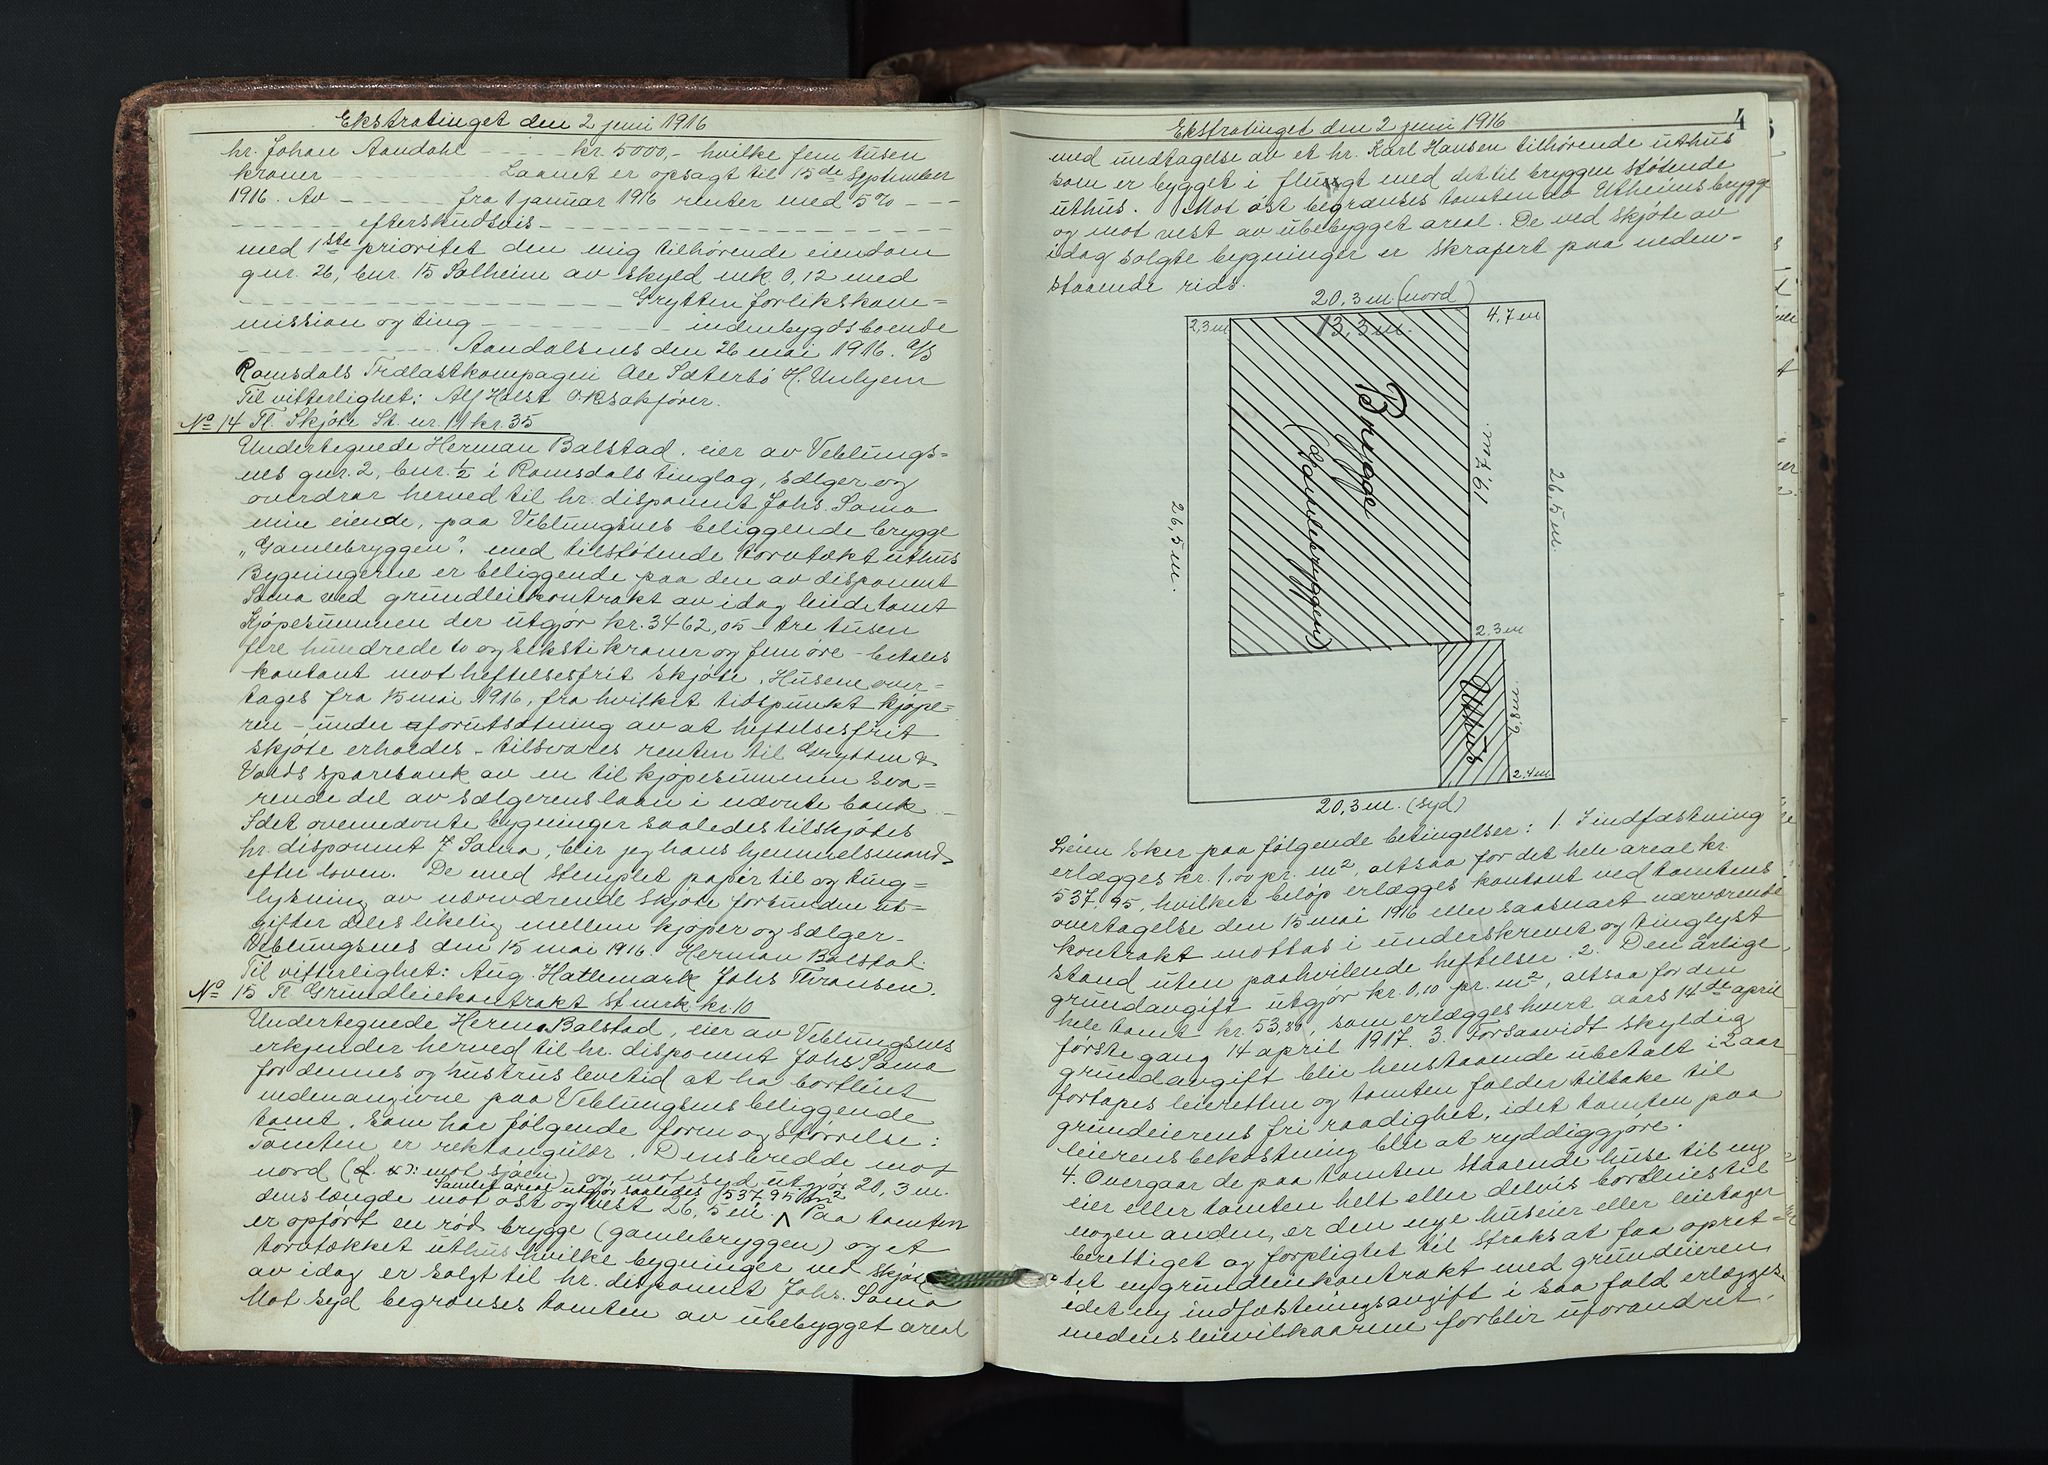 Ekstratinget den 2 juni 1916
hr. Johan Aandahl - - - - kr. 5000,- hvilke fem tusen
kroner - - - - Laanet er opsagt til 15de September
1916. Av - - - - fra 1 januar 1916 renter med 5% - - -
- - - - efterskudsvis - - - -
med 1ste prioritet den mig tilhørende eiendom
gnr. 26, bnr. 15 Solheim av skyld mk 0,12 med
- - - - Grytten forlikskom=
mission og ting - - - - indenbygdsboende
- - - - Aandalsnes den 26 mai 1916. A/S
Romsdals Trælastkompagni Ole Sæterbö H. Unhjem
Til vitterlighet: Alf Holst O.r.sakfører.
No 14 Tl. Skjøte St. nr. 11 kr. 35
Undertegnede Herman Balstad, eier av Veblungs=
nes gnr. 2, bnr. 1/2 i Romsdals tinglag, sælger og
overdrar herved til hr. disponent Johs. Sama
min eiende, paa Veblungsnes beliggende brygge
„Gamlebryggen". med tilstøtende torvtækt uthus
Bygningerne er beliggende paa den av disponent
Sama ved grundleiekontrakt av idag leiede tomt
Kjøpesummen der utgjør kr. 3462,05 - tre tusen
fire hundrede to og seksti kroner og fem øre - betales
kontant mot heftelsesfrit skjøte. Husene over=
tages fra 15 mai 1916, fra hvilket tidspunkt kjøpe=
ren - under forutsætning av at heftelsesfrit
skjøte erholdes - tilsvares renten til Grytten &
Volds sparebank av en til kjøpesummen sva=
rende del av sælgerens laan i nævnte bank.
Idet ovennævnte bygninger saaledes tilskjøtes
hr. disponent J Sama, blir jeg hans hjemmelsmand
efter loven. De med stemplet papir til og ting=
lysning av nærværende skjøte forbundne ut=
gifter deles likelig mellem kjøper og sælger.
Veblungsnes den 15 mai 1916. Herman Balstad.
Til vitterlighet: Aug. Hattemark Johs Thronsen.
No 15 Tl. Grundleiekontrakt st mrk kr. 10
Undertegnede Herm. Balstad, eier av Veblungsnes
erkjender herved til hr. disponent Johs Sama
for dennes og hustrus levetid at ha bortleiet
nedenangivne paa Veblungsnes beliggende
tomt, som har følgende form og størrelse:
Tomten er rektangulær. Dens bredde mot
nord (d. v.s: mot sjøen) og mot syd utgjør 20,3 m.
Samlet areal utgjør saaledes 537,95 m2
dens længde mot øst og vest 26,5 m. ^ Paa tomten
er opført en rød brygge (gamlebryggen) og et
torvtækket uthus hvilke bygninger ved skjøte
av idag er solgt til hr. disponent Johs. Sama
Mot syd begrænses tomten av ubebygget areal
Ekstratinget den 2 juni 1916
4
med undtagelse av et hr. Karl Hansen tilhørende uthus
som er bygget i flugt med det til bryggen støtende
uthus. Mot øst begrænses tomten av Utheimsbrygge
og mot vest av ubebygget areal. De ved skjøte av
idag solgte bygninger er skrafert paa neden=
staaende rids.
20,3 m. (nord)
2,3 m
13,3 m.
4,7 m
Brygge
(Gamlebryggen)
19,7 m.
26,5 m.
26,5 m.
2,3 m
Uthus
6,8 m.
2,4 m
20,3 m. (syd)
Leien sker paa følgende betingelser: 1. I indfæstning
erlægges kr. 1,00 pr. m2, altsaa for det hele areal kr.
537,95, hvilket beløp erlægges kontant ved tomtens
overtagelse den 15 mai 1916 eller saasnart nærværende
kontrakt mottas i underskrevet og tinglyst
stand uten paahvilende heftelser. 2. Den årlige
grundavgift utgjør kr. 0,10 pr. m2, altsaa for den
hele tomt kr. 53,80, som erlægges hvert aars 14de april
første gang 14 april 1917. 3. Forsaavidt skyldig
grundavgift blir henstaaende ubetalt i 2 aar
fortapes leieretten og tomten falder tilbake til
grundeierens fri raadighet, idet tomten paa
leierens bekostning blir at ryddiggjøre.
4. Overgaar de paa tomten staaende huse til ny
eier eller tomten helt eller delvis bortleies til
nogen anden, er den nye huseier eller leietager
berettiget og forpligtet til straks at faa opret=
tet ny grundleiekontrakt med grundeieren,
idet ny indfæstningsavgift i saa fald erlægges.
medens leievilkaarene forblir uforandret.